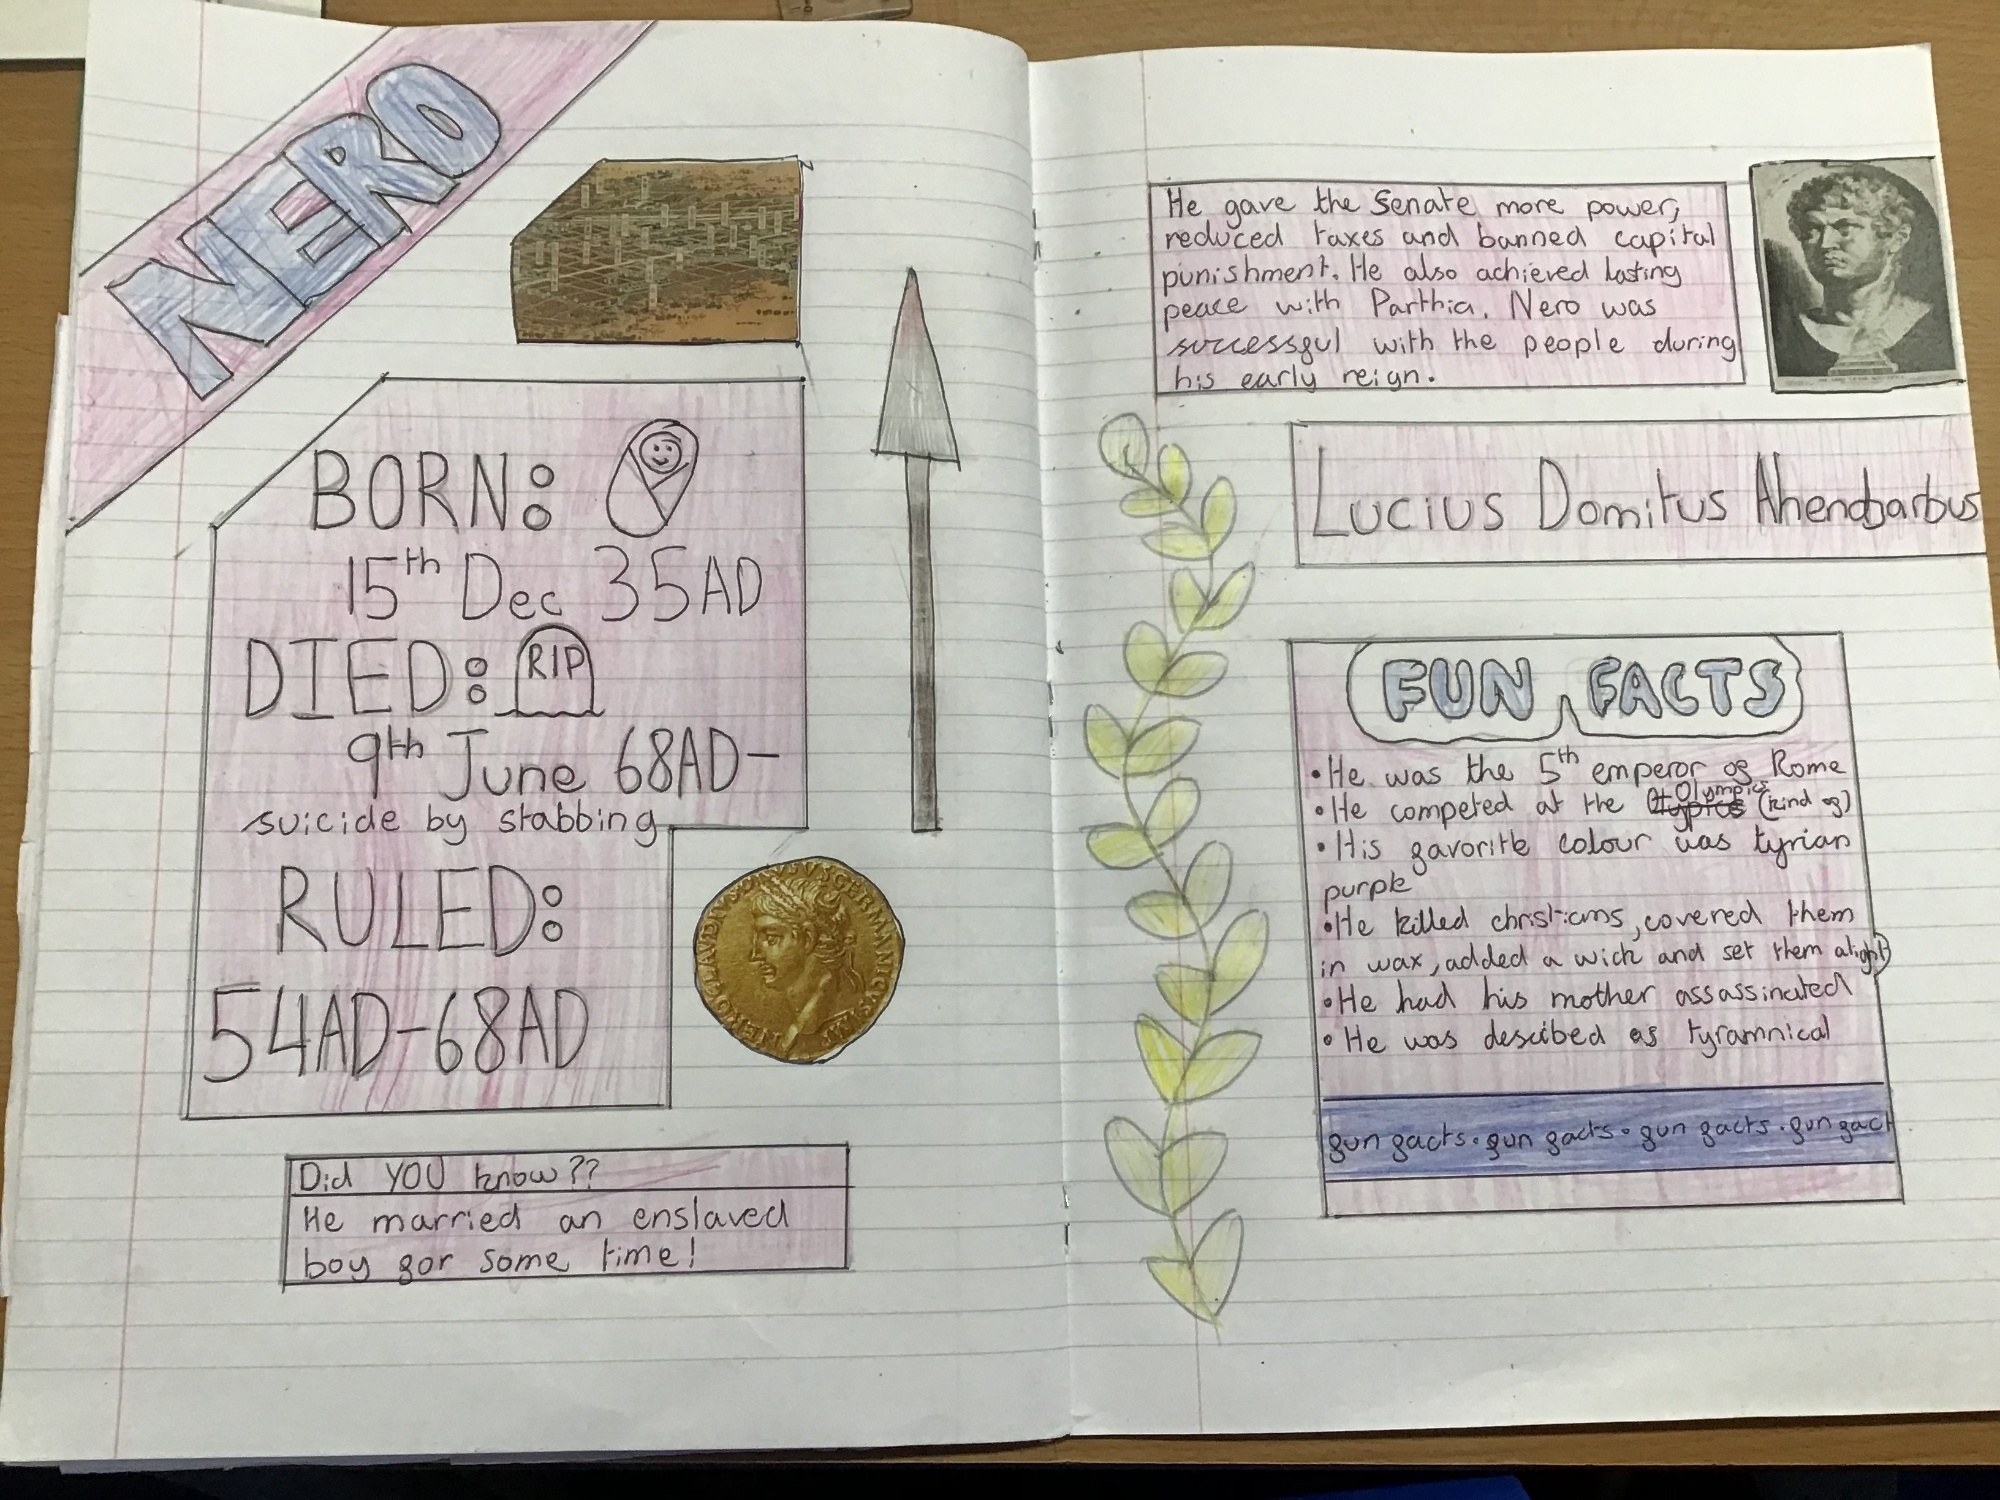 NERO
BORN:
15th Dec 35AD
DIED:
RIP
9th June 68AD-
suicide by stabbing
RULED:
54AD-68AD
Did YOU know??
He married an enslaved
boy for some time!
He gave the Senate more power,
reduced taxes and banned capital
punishment. He also achieved lasting
peace with Parthia. Nero was
successful with the people during
his early reign.
Lucius Domitus Ahenobarbus
FUN FACTS
•He was the 5th emperor of Rome
•He competed at the Olympics (kind of)
•His favorite colour was tyrian
purple
•He killed christians, covered them
in wax, added a wick and set them alight
•He had his mother assassinated
•He was descibed as tyramnical
fun facts•fun facts•fun facts•fun fact